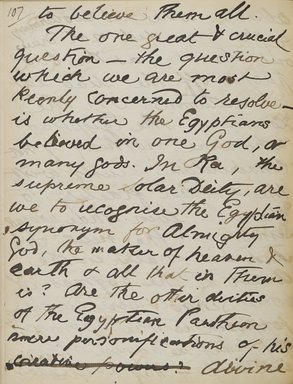 107 to believe them all.
The one great & crucial
question — the question
which we are most
keenly concerned to resolve —
is whether the Egyptians
believed in one God, or
many gods. In Ra, the
supreme solar Deity, are
we to recognise the Egyptian
synonym for Almighty
God, the maker of heaven &
earth & all that in them
is? Are the other deities
of the Egyptian Pantheon
mere personifications of his
creative powers? divine